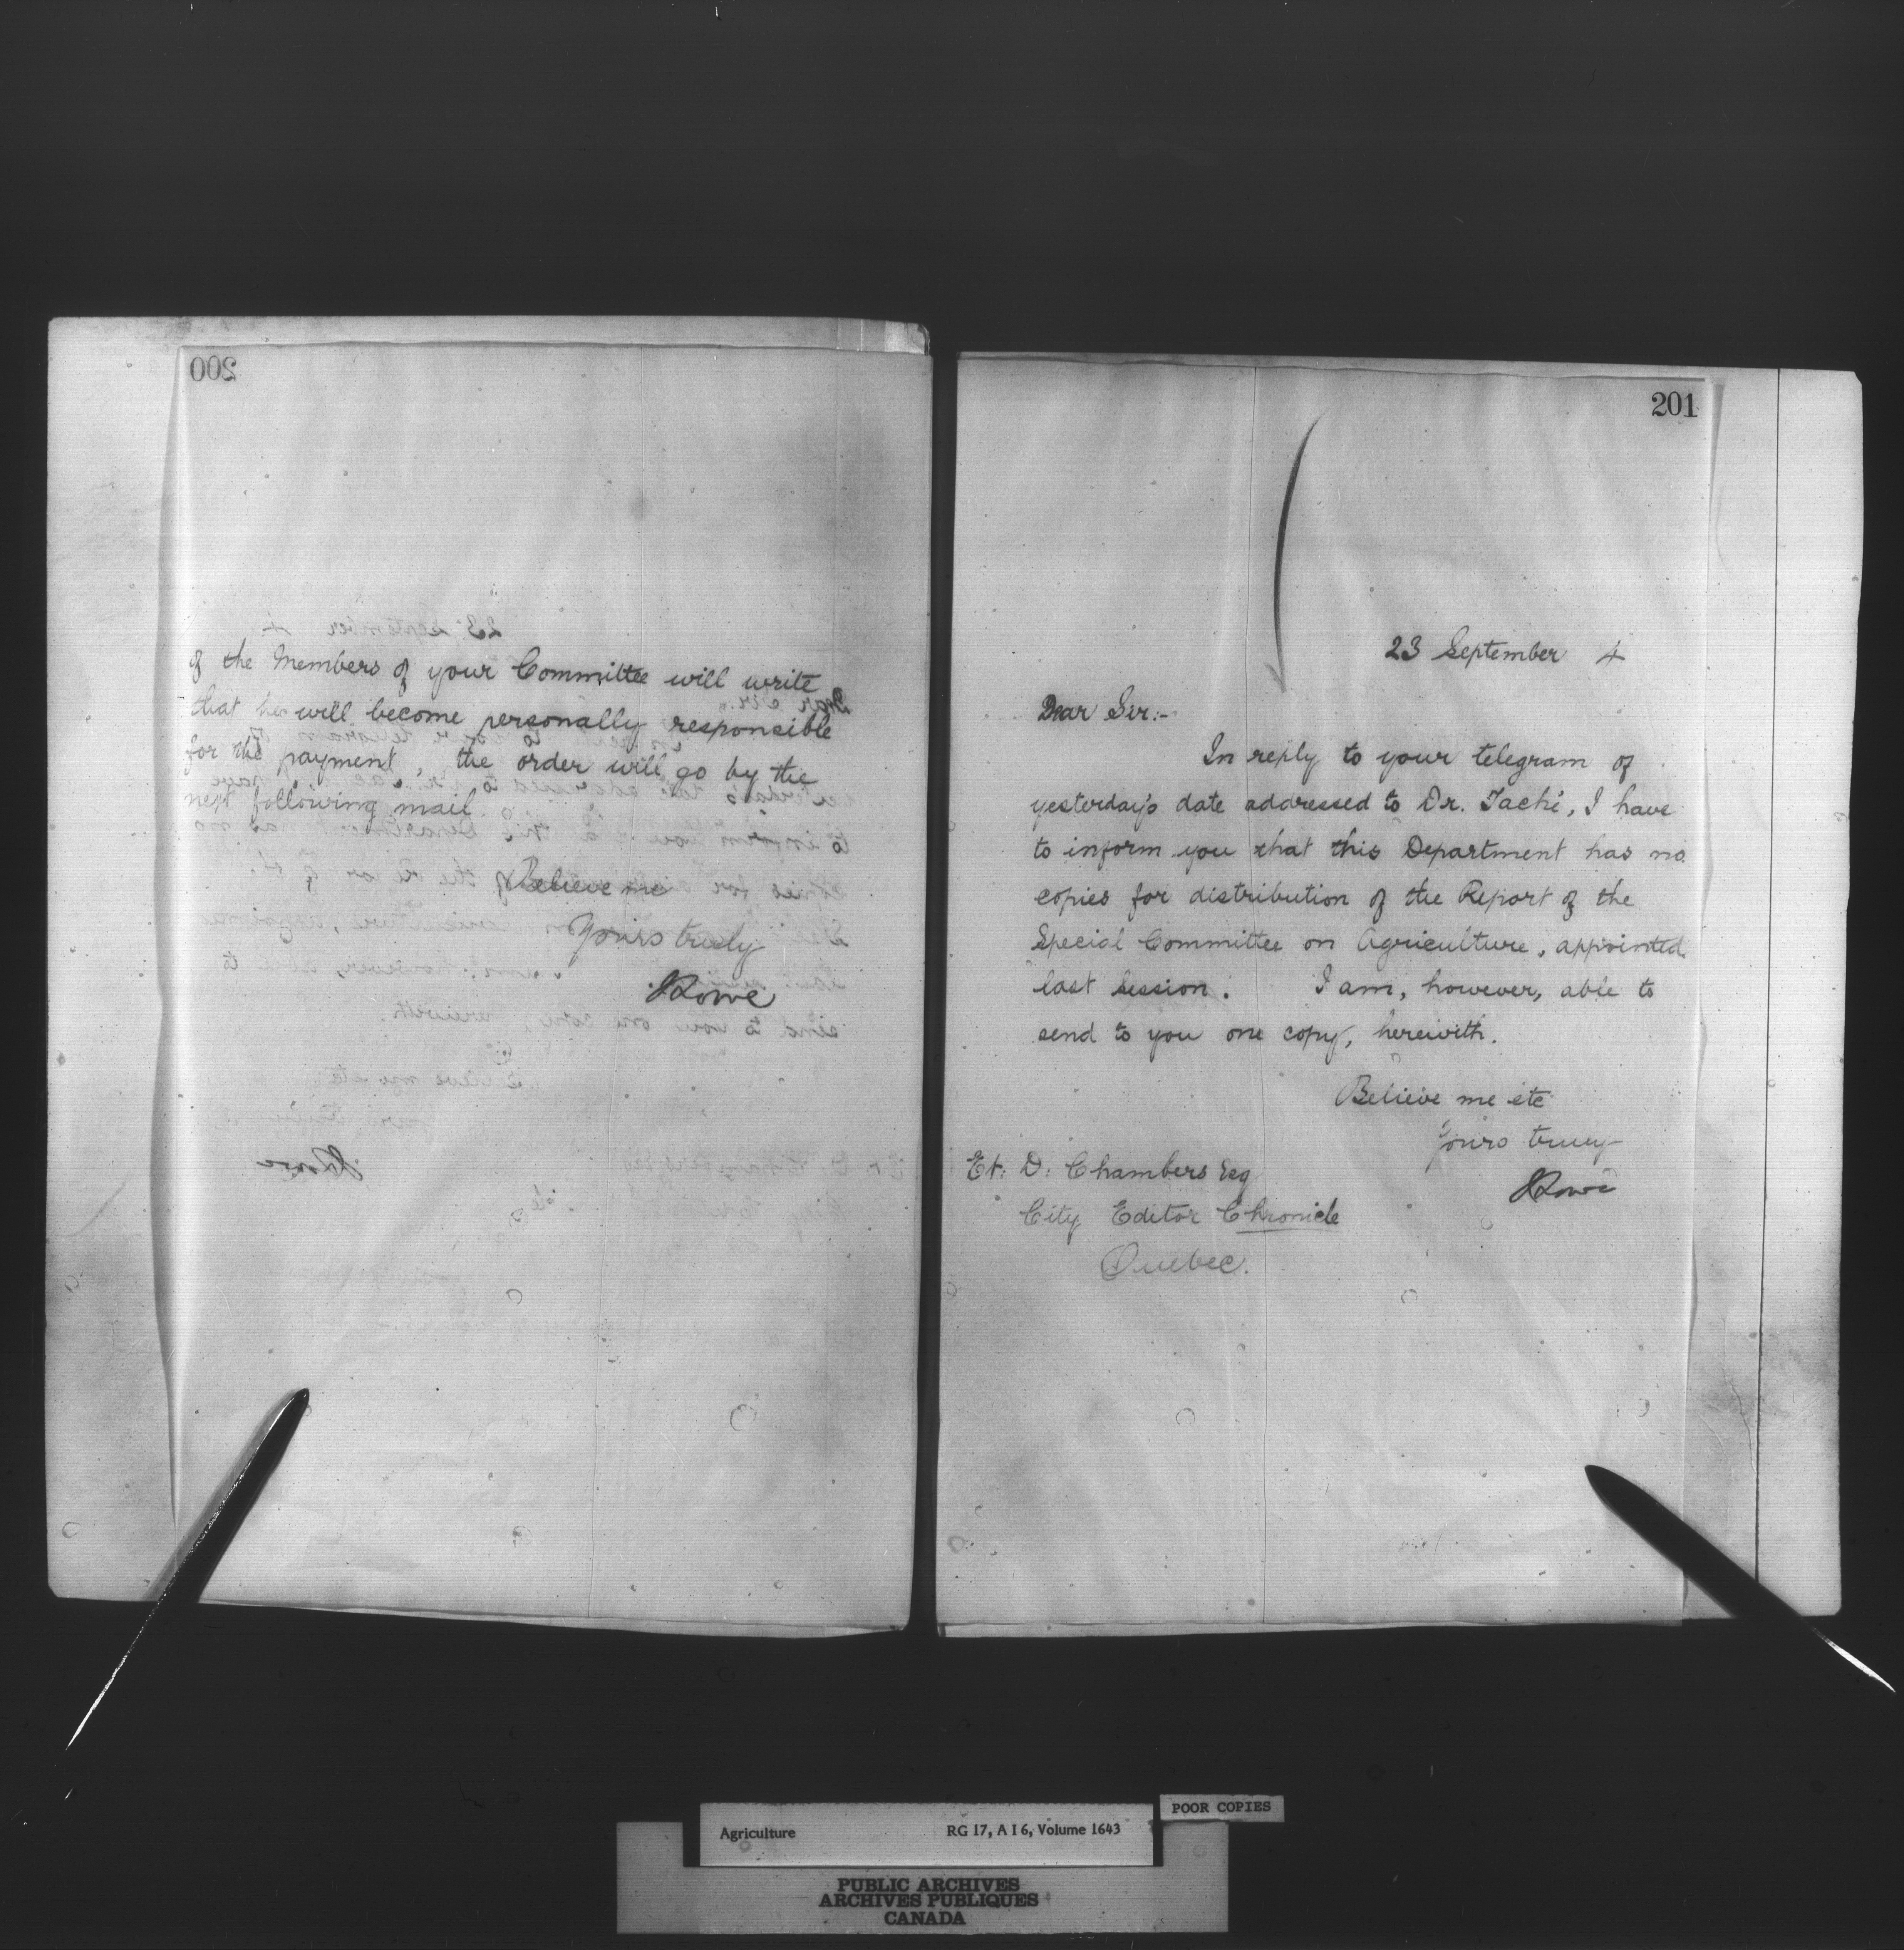 200
of the Members of your Committee will write
that he will become personally responsible
for the payment, the order will go by the
next following mail.
Believe me
Yours truly
JLowe
201
23 September 4
Dear Sir:-
In reply to your telegram of
yesterday's date addressed to Dr. Taché, I have
to inform you that this Department has no
copies for distribution of the Report of the
Special Committee on Agriculture, appointed
last session. I am, however, able to
send to you one copy, herewith.
Believe me etc
Yours truly
JLowe
Et: D: Chambers Esq
City Editor Chronicle
Quebec.
POOR COPIES
Agriculture RG 17, A I 6, Volume 1643
PUBLIC ARCHIVES
ARCHIVES PUBLIQUES
CANADA